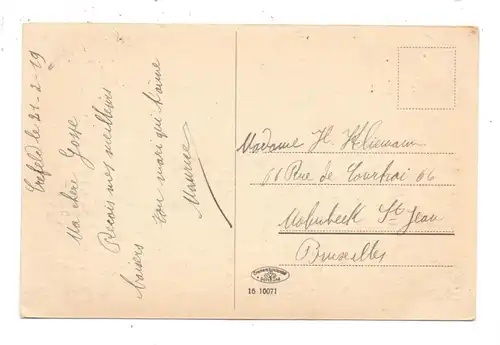 Crefeld le 21-2-19
Ma chère Gosse
Recois mes meilleurs
baisers
ton mari qui t'aime
Maurice
Madame H.
66 Rue de Courtrai 66
Molenbeek St Jean
Bruxelles
16 10071